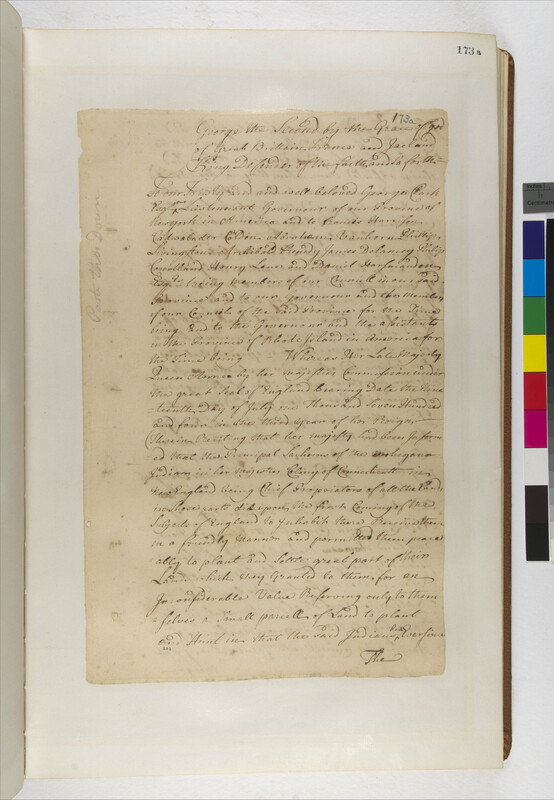 173a
173a
George the Second by the Grace of God
of Great Brittain France and Ireland
King Defender of the faith and so forth
To our Trusty and and well beloved George Clark
Esqr Lieutenant Governour of our Province of
Newyork in America and to Francis Harrison
Cadwalader Colden Abraham Vanhorn Phillip
Livingston Archibald Kenedy James Delancey Philip
Courtland Henry Lane and Daniel Horsmanden
Esqrs being members of our Council in our Said
Province and to our governour and the members
of our Councils of the Said Province for the Time
being and to the Governour and the Assistants
in the Province of Rhode Island in America for
the Time being Whereas Her Late Majesty
Queen Anne by her majesties Commission under
the great Seal of England bearing Date the Nine
teenth Day of July one Thousand Seven Hundred
and four in the third year of her Reign
Therein Reciting that her majesty had been Inform
ed that the Principal Sachems of the mohegan
Indians in her majesties Colony of Connecticutt in
New England being Chief Proprietors of all the Land
in those parts did upon the first Coming of the
Subjects of England to Inhabit there Receive them
in a friendly manner and permitted them peace
ably to plant and Settle great part of their
Lands which they Granted to them for an
Inconsiderable Value Reserving only to them
=selves a Small parcell of Land to plant
and Hunt in that the said Indians have Ever since
The